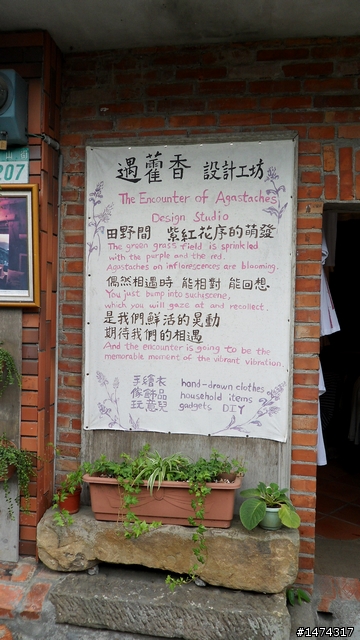 207
遇藿香 設計工坊
The Encounter of Agastaches
Design Studio
田野間 紫紅花序的萌發
The green grass field is sprinkled
with the purple and the red.
Agastaches on inflorescences are blooming.
偶然相遇時 能相對 能回想
You just bump into such scene,
which you will gaze at and recollect.
是我們鮮活的晃動
期待我們的相遇
And the encounter is going to be the
memorable moment of the vibrant vibration.
手繪衣 hand-drawn clothes
傢飾品 household items
玩意兒 gadgets DIY
#1474317